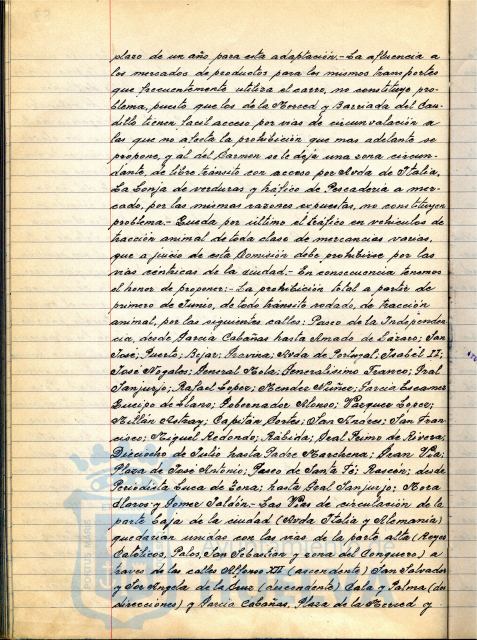 plazo de un año para esta adaptación.- La afluencia a
los mercados de productos para los mismos transportes
que frecuentemente utiliza el carro, no constituye pro-
blema, puesto que los de la Merced y Barriada del Cau-
dillo tienen facil acceso por vias de circunvalación a
las que no afecta la prohibición que mas adelante se
propone, y al del Carmen se le deja una zona circun-
dante, de libre tránsito con acceso por Avda de Italia,
La Lonja de verduras y tráfico de Pescaderia a mer-
cado, por las mismas razones expuestas, no constituyen
problema.- Queda por último el tráfico en vehiculos de
tracción animal de toda clase de mercancias varias,
que a juicio de esta Comisión debe prohibirse por las
vias centricas de la ciudad.- En consecuencia tenemos
el honor de proponer:- La prohibición total a partir de
primero de Junio, de todo tránsito rodado, de tracción
animal, por las siguientes calles: Paseo de la Independen-
cia, desde Garcia Cabañas hasta Amado de Lázaro; San
José; Puerto; Bejar; Gravina; Avda de Portugal; Isabel II;
José Nogales; General Mola; Generalisimo Franco; Gral
Sanjurjo; Rafael Lopez; Mendez Nuñez; Garcia Escamez
Queipo de Llano; Gobernador Alonso; Vazquez Lopez;
Millán Astray; Capitán Cortes; San Andrés; San Fran-
cisco; Miguel Redondo; Rábida; Gral Primo de Rivera;
Dieciocho de Julio hasta Padre Marchena; Gran Via;
Plaza de José Antonio; Paseo de Santa Fé; Rascón; desde
Periodista Luca de Tena; hasta Gral Sanjurjo; Mora
Claros y Gomez Jaldón.- Las Vias de circulación de la
parte baja de la ciudad (Avda Italia y Alemania)
quedarian unidas con las vias de la parte alta (Reyes
Católicos, Palos, San Sebastian y zona del Conquero) a
traves de las calles Alfonso XII (ascendente) San Salvador
y Sor Angela de la Cruz (descendente) Cala y Palma (dos
direcciones) y Garcia Cabañas, Plaza de la Merced y